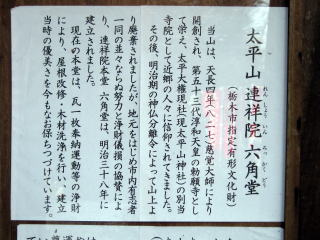 太平山 連祥院 六角堂
(栃木市指定有形文化財)
当山は、天長四年(八二七)慈覚大師により
開創され、第五十三代淳和天皇の勅願寺とし
て栄え、太平山大権現(現太平山神社)の別当
寺院として近郷の人々に信仰されてきました。
その後、明治期の神仏分離令によって山上よ
り廃寺されましたが、地元をはじめ市内有志者
一同の並々ならぬ努力と浄財儀損の協賛によ
り、連祥院本堂 六角堂は、明治三十八年に
建立されました。
現在の本堂は、瓦一枚奉納運動等の浄財
により、屋根改修・木材洗浄を行い、建立
当時の優美さを今もなお保ちつづけています。